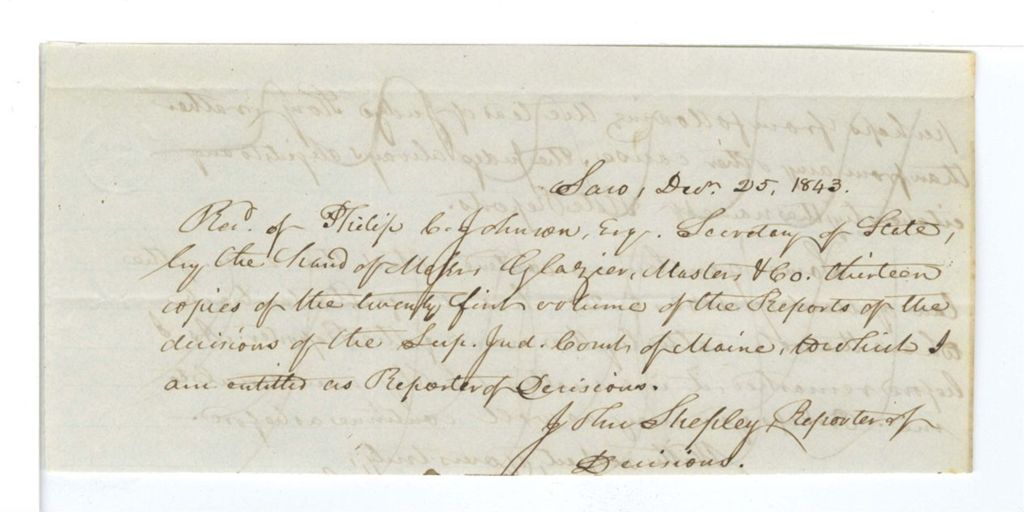 Saco, Decr. 25, 1843.
Recd. of Philip C. Johnson, Esq. Secretary of State,
by the hand of Messrs Glazier, Masters & Co. thirteen
copies of the twenty first volume of the Reports of the
decisions of the Sup. Jud. Court of Maine, to which I
am entitled as Reporter of Decisions.
John Shepley Reporter of
Decisions.